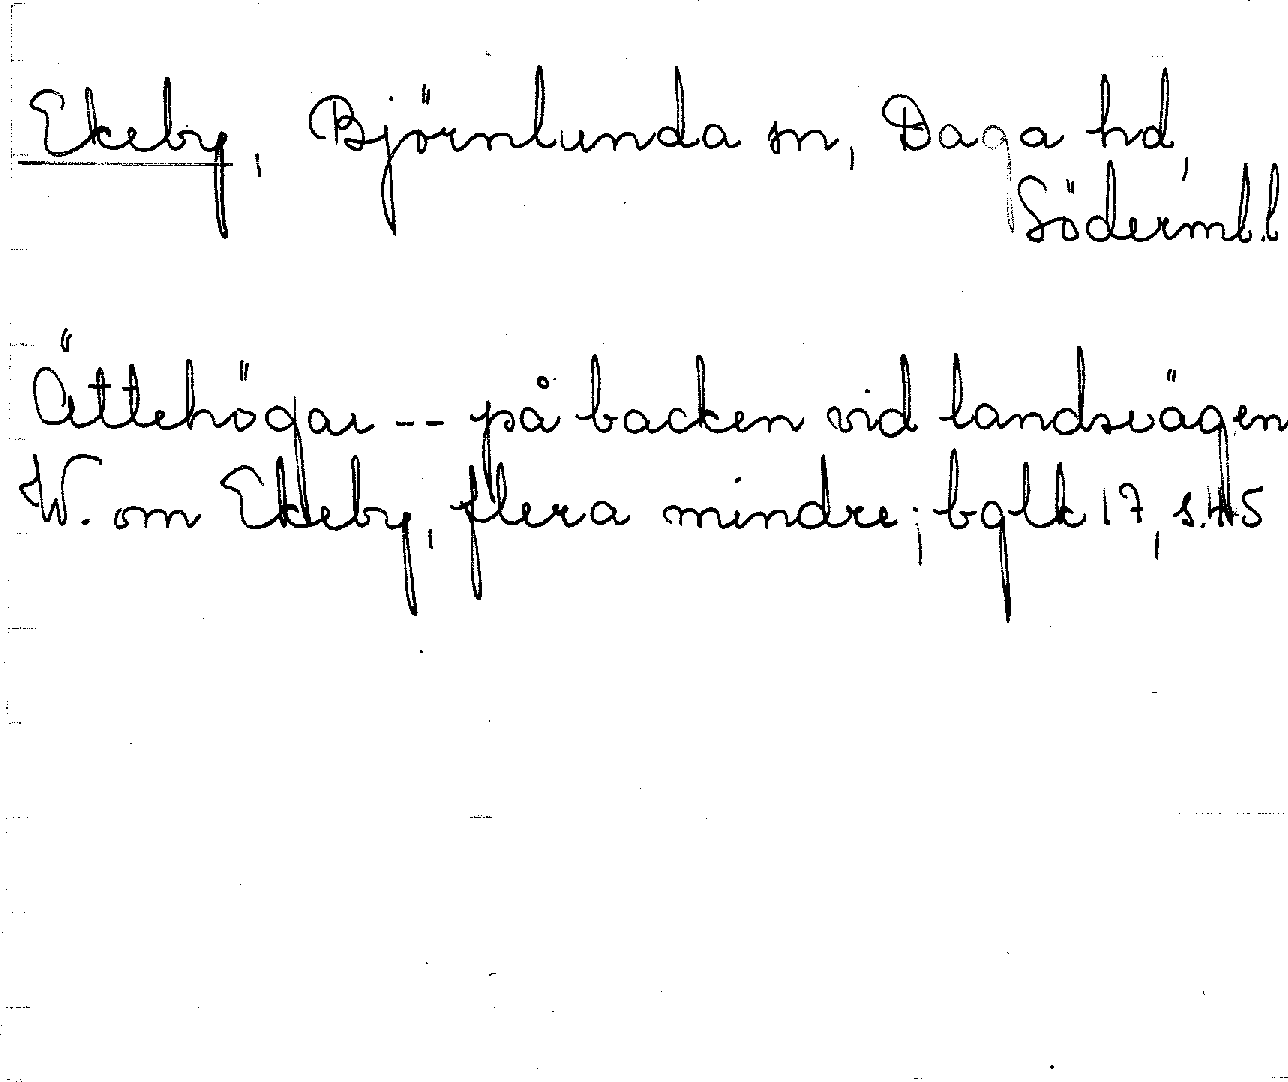 Ekeby, Björnlunda sn, Daga hd,
Söderml.l
Ättehögar -- på backen vid landsvägen
W. om Ekeby, flera mindre; bglk 17, s.45